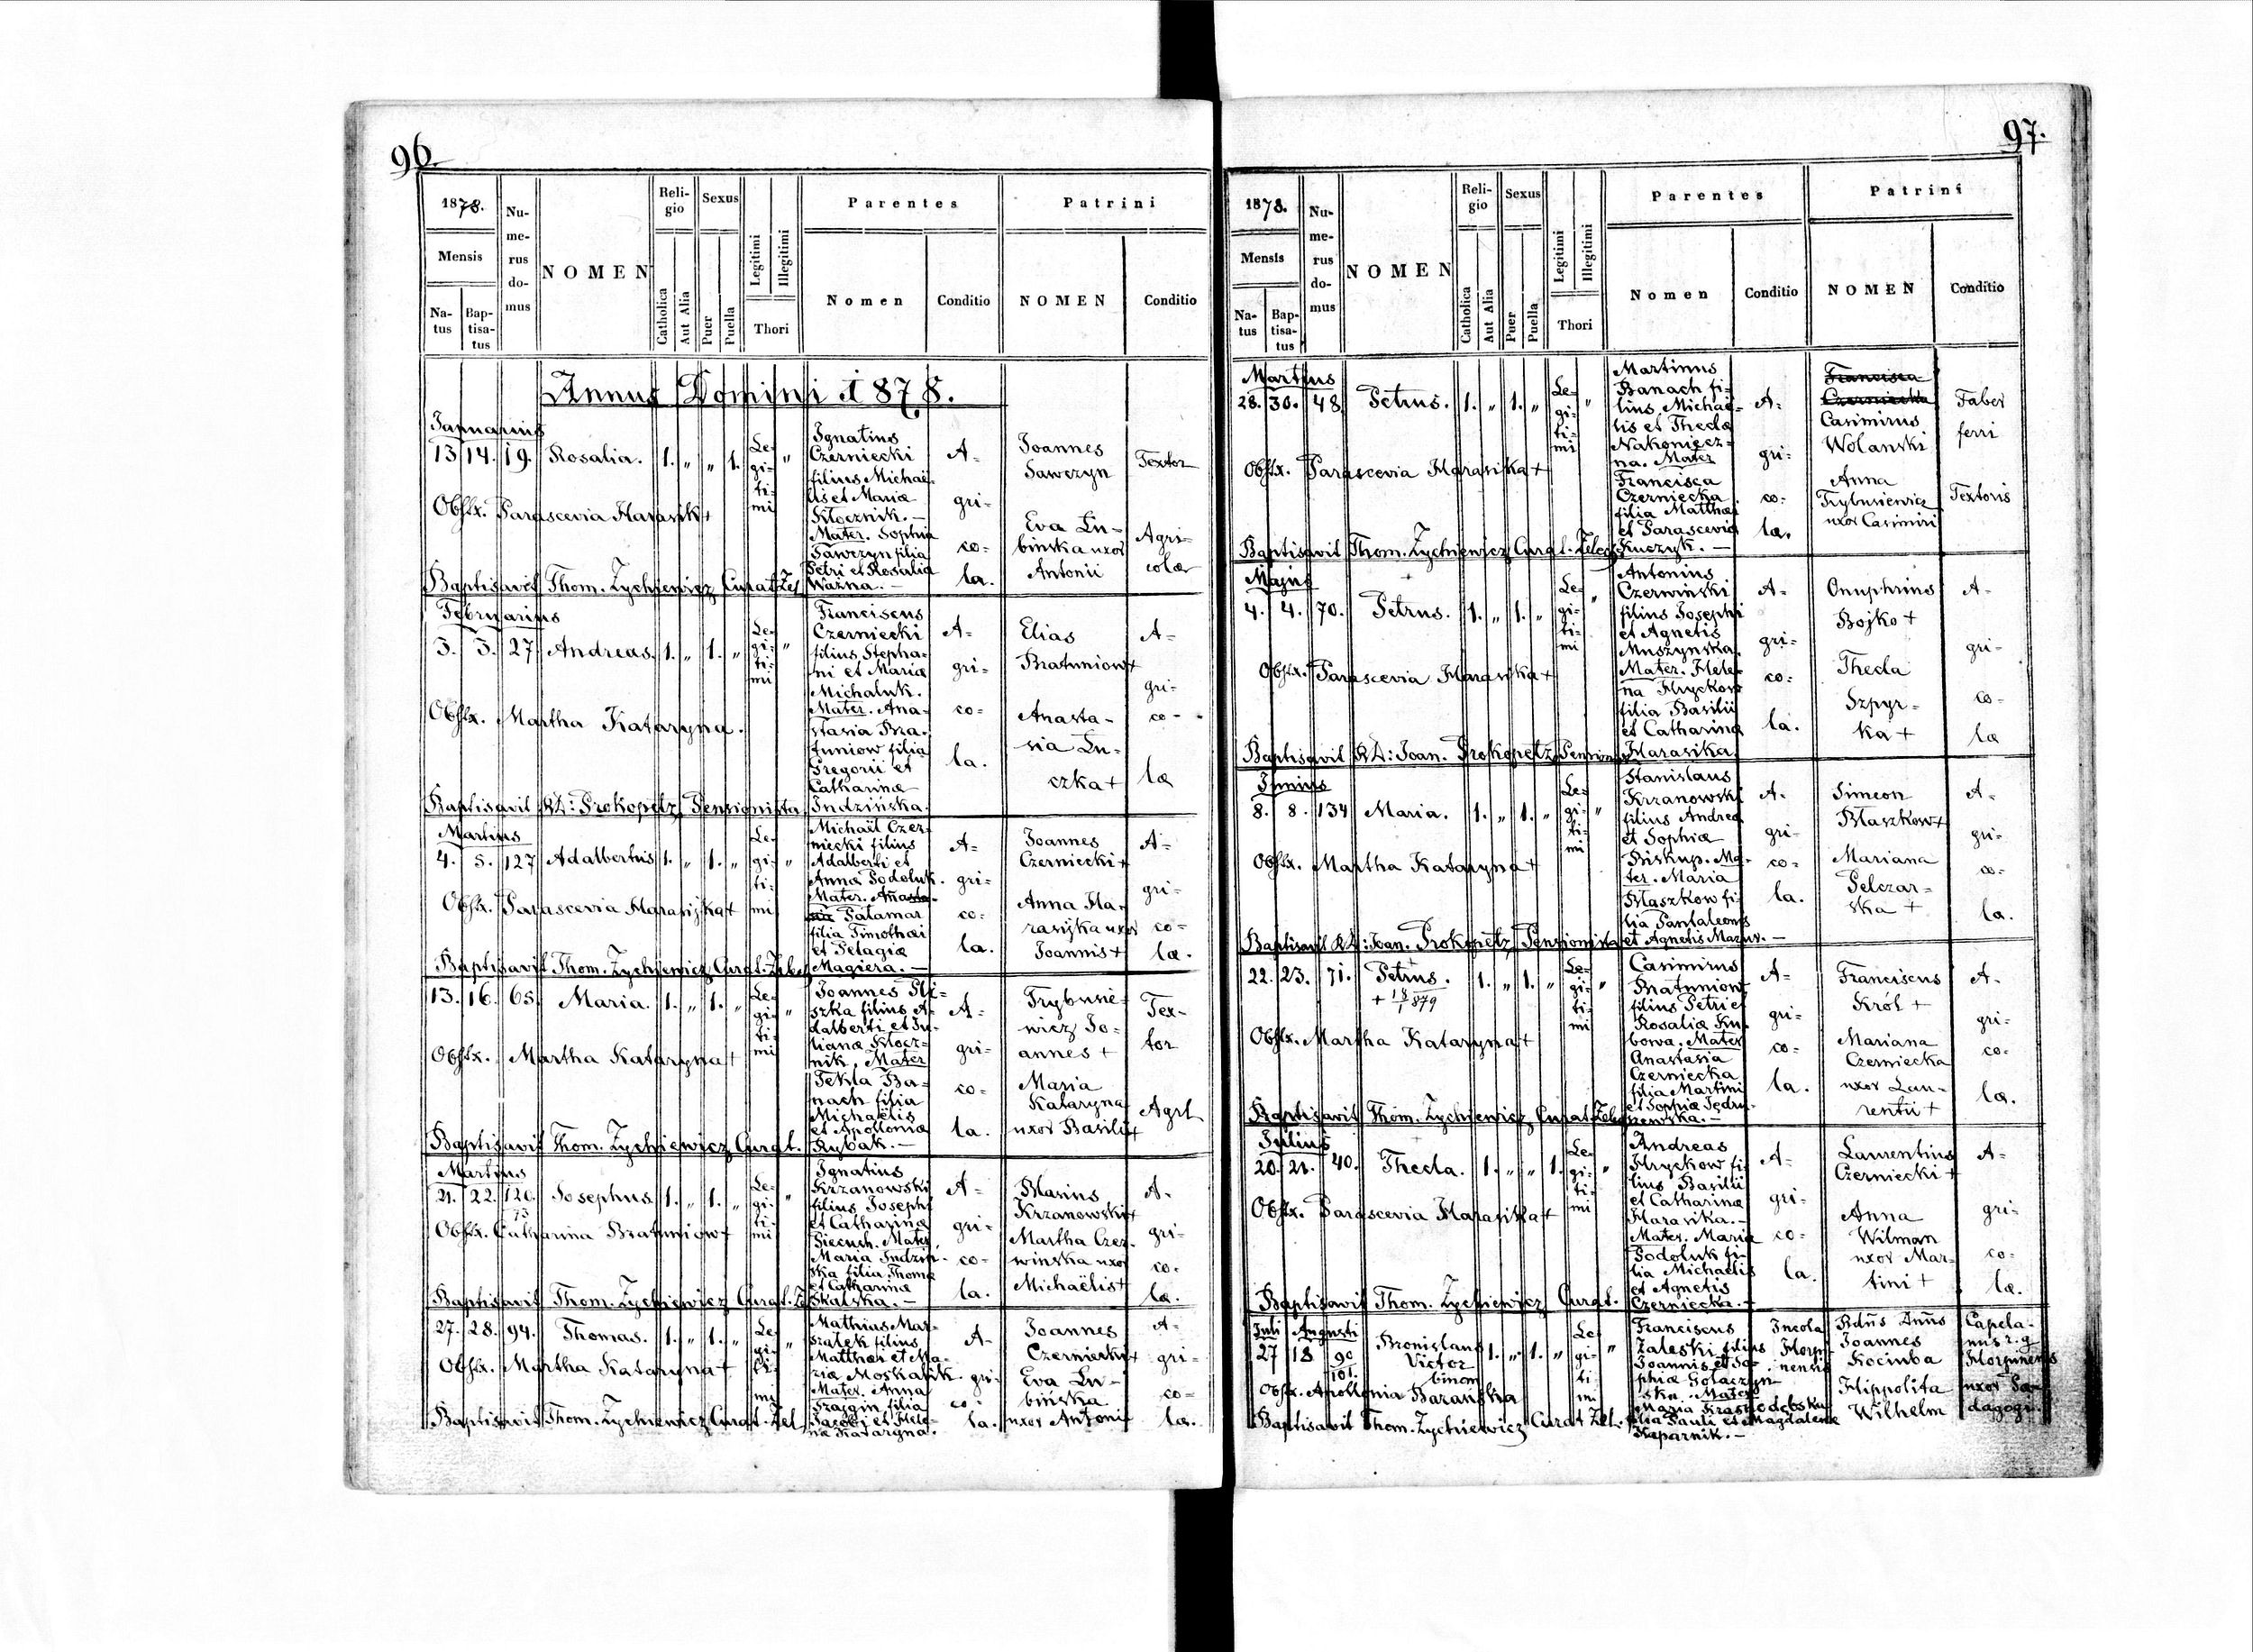 96.
1878.
Mensis
Na-
tus
Bap-
tisa-
tus
Nu-
me-
rus
do-
mus
NOMEN
Reli-
gio
Catholica
Aut Alia
Sexus
Puer
Puella
Legitimi
Illegitimi
Thori
Parentes
Nomen
Conditio
Patrini
NOMEN
Conditio
Annus Domini 1878.
Januarius
13 14. 19. Rosalia. 1. „ „ 1.
Le-
gi-
ti-
mi
Ignatius
Czerniecki
filius Michaë-
lis et Mariæ
Kłocznik. —
Mater. Sophia
Sawczyn filia
Petri et Rosalia
Ważna. —
A-
gri-
co-
la.
Joannes
Sawczyn
Textor
Eva Lu-
binska uxor
Antonii
Agri-
colæ
Obstx. Parascevia Harasik+
Baptisavit Thom. Zychiewicz Curat Zel
Februarius
3. 3. 27 Andreas. 1. „ 1. „
Le-
gi-
ti-
mi
Franciscus
Czerniecki
filius Stepha-
ni et Mariæ
Michaluk.
Mater. Ana-
stasia Bra-
tuniow filia
Gregorii et
Catharinæ
Indzińska.
A-
gri-
co-
la.
Elias
Bratuniow+
Anasta-
sia Lu-
czka+
A-
gri-
co-
læ
Obstx. Martha Kataryna.
Baptisavit RD: Prokopetz Pensionista
Martius
4. 5. 127 Adalbertus 1. „ 1. „
Le-
gi-
ti-
mi
Michaël Czer-
niecki filius
Adalberti et
Annæ Podoluk.
Mater.
Palamar
filia Timothæi
et Pelagiæ
Magiera. —
A-
gri-
co-
la.
Joannes
Czerniecki+
Anna Ha-
rasijka uxor
Joannis+
A-
gri-
co-
læ.
Obstx. Parascevia Harasijka+
Baptisavit Thom. Zychiewicz Curat. Zelech
13. 16. 65. Maria. 1. „ 1. „
Le-
gi-
ti-
mi
Joannes Pli-
szka filius A-
dalberti et Ju-
lianæ Kłocz-
nik, Mater
Tekla Ba-
nach filia
Michaëlis
et Apolloniæ
Rybak. —
A-
gri-
co-
la.
Trybusie-
wicz Jo-
annes +
Maria
Kataryna
uxor Basilii+
Tex-
tor
Agrl
Obstx. Martha Kataryna+
Baptisavit Thom. Zychiewicz Curat.
Martius
21. 22. 120. Josephus. 1. „ 1. „
73
Le-
gi-
ti-
mi
Ignatius
Krzanowski
filius Josephi
et Catharinæ
Piecuch. Mater
Maria Indziń-
ska filia Thomæ
et Catharinæ
Skalska. —
A-
gri-
co-
la.
Blasius
Krzanowski+
Martha Czer-
winska uxor
Michaëlis+
A-
gri-
co-
læ.
Obstx. Catharina Bratuniow+
Baptisavit Thom. Zychiewicz Curat. Z
27. 28. 94. Thomas. 1. „ 1. „
Le-
gi-
ti-
mi
Mathius Mar-
szałek filius
Matthæi et Ma-
riæ Moskalik.
Mater. Anna
filia
Jacobi et Hele-
næ Kataryna.
A-
gri-
co-
la.
Joannes
Czerniecki+
Eva Lu-
bińska
uxor Antonii
A-
gri-
co-
læ.
Obstx. Martha Kataryna+
Baptisavit Thom. Zychiewicz Curat. Zel
97.
1878.
Mensis
Na-
tus
Bap-
tisa-
tus
Nu-
me-
rus
do-
mus
NOMEN
Reli-
gio
Catholica
Aut Alia
Sexus
Puer
Puella
Legitimi
Illegitimi
Thori
Parentes
Nomen
Conditio
Patrini
NOMEN
Conditio
Martius
28. 30. 48 Petrus. 1. „ 1. „
Le-
gi-
ti-
mi
Martinus
Banach fi-
lius Michaë-
lis et Theclæ
Nakoniecz-
na. Mater
Francisca
Czerniecka
filia Matthæi
et Parasceviæ
Kuczyk. —
A-
gri-
co-
læ.
Francisca
Czerniecka
Casimirus
Wolanski
Anna
Trybusiewicz
uxor Casimiri
Faber
ferri
Textoris
Obstx. Parascevia Harasika+
Baptisavit Thom. Zychiewicz Curat. Zelech
Majus
4. 4. 70. Petrus. 1. „ 1. „
Le-
gi-
ti-
mi
Antonius
Czerwiński
filius Josephi
et Agnetis
Muszynska.
Mater. Hele-
na Hryckow
filia Basilii
et Catharinæ
Harasika.
A-
gri-
co-
la.
Onuphrius
Bojko+
Thecla
Szpyr-
ka+
A-
gri-
co-
læ
Obstx. Parascevia Harasika+
Baptisavit RD: Joan. Prokopetz Pension
Junius
8. 8. 134 Maria. 1. „ 1. „
Le-
gi-
ti-
mi
Stanislaus
Krzanowski
filius Andreæ
et Sophiæ
Biskup. Ma-
ter. Maria
Błaszkow fi-
lia Pantaleonis
et Agnetis Mazur. —
A-
gri-
co-
la.
Simeon
Błaszkow+
Mariana
Pelczar-
ska +
A-
gri-
co-
la.
Obstx. Martha Kataryna+
Baptisavit RD: Joan. Prokopetz Pensionista
22. 23. 71. Petrus. 1. „ 1. „
+ 18/1 879
Le-
gi-
ti-
mi
Casimirus
Bratuniow
filius Petri et
Rosaliæ Ku-
bowa. Mater
Anastasia
Czerniecka
filia Martini
et Sophiæ Jędru-
szewska. —
A-
gri-
co-
la.
Franciscus
Król +
Mariana
Czerniecka
uxor Lau-
rentii+
A-
gri-
co-
læ.
Obstx. Martha Kataryna+
Baptisavit Thom. Zychiewicz Curat Zele
Julius
20. 21. 40. Thecla. 1. „ „ 1.
Le-
gi-
ti-
mi
Andreas
Hryckow fi-
lius Basilii
et Catharinæ
Harasika. —
Mater. Maria
Podoluk fi-
lia Michaëlis
et Agnetis
Czerniecka. —
A-
gri-
co-
la.
Laurentius
Czerniecki+
Anna
Wilman
uxor Mar-
tini+
A-
gri-
co-
læ.
Obstx. Parascevia Harasika+
Baptisavit Thom. Zychiewicz Curat.
Juli Augusti
27 18 90 Bronislaus 1. „ 1. „
101.
Victor
binom
Le
gi-
ti
mi
Franciscus
Zaleski filius
Joannis et So-
phiæ Gołaczyn-
ska. Mater
Maria
filia Pauli et Magdalenæ
Kaparnik. —
Incola
Horpi-
nensis
Rdus Dnus
Joannes
Kociuba
Hippolita
Wilhelm
Capela-
nus r. g
Horpinensis
uxor Pæ-
dagogi.
Obstx. Apollonia Barańska
Baptisavit Thom. Zychiewicz Curat Zel.